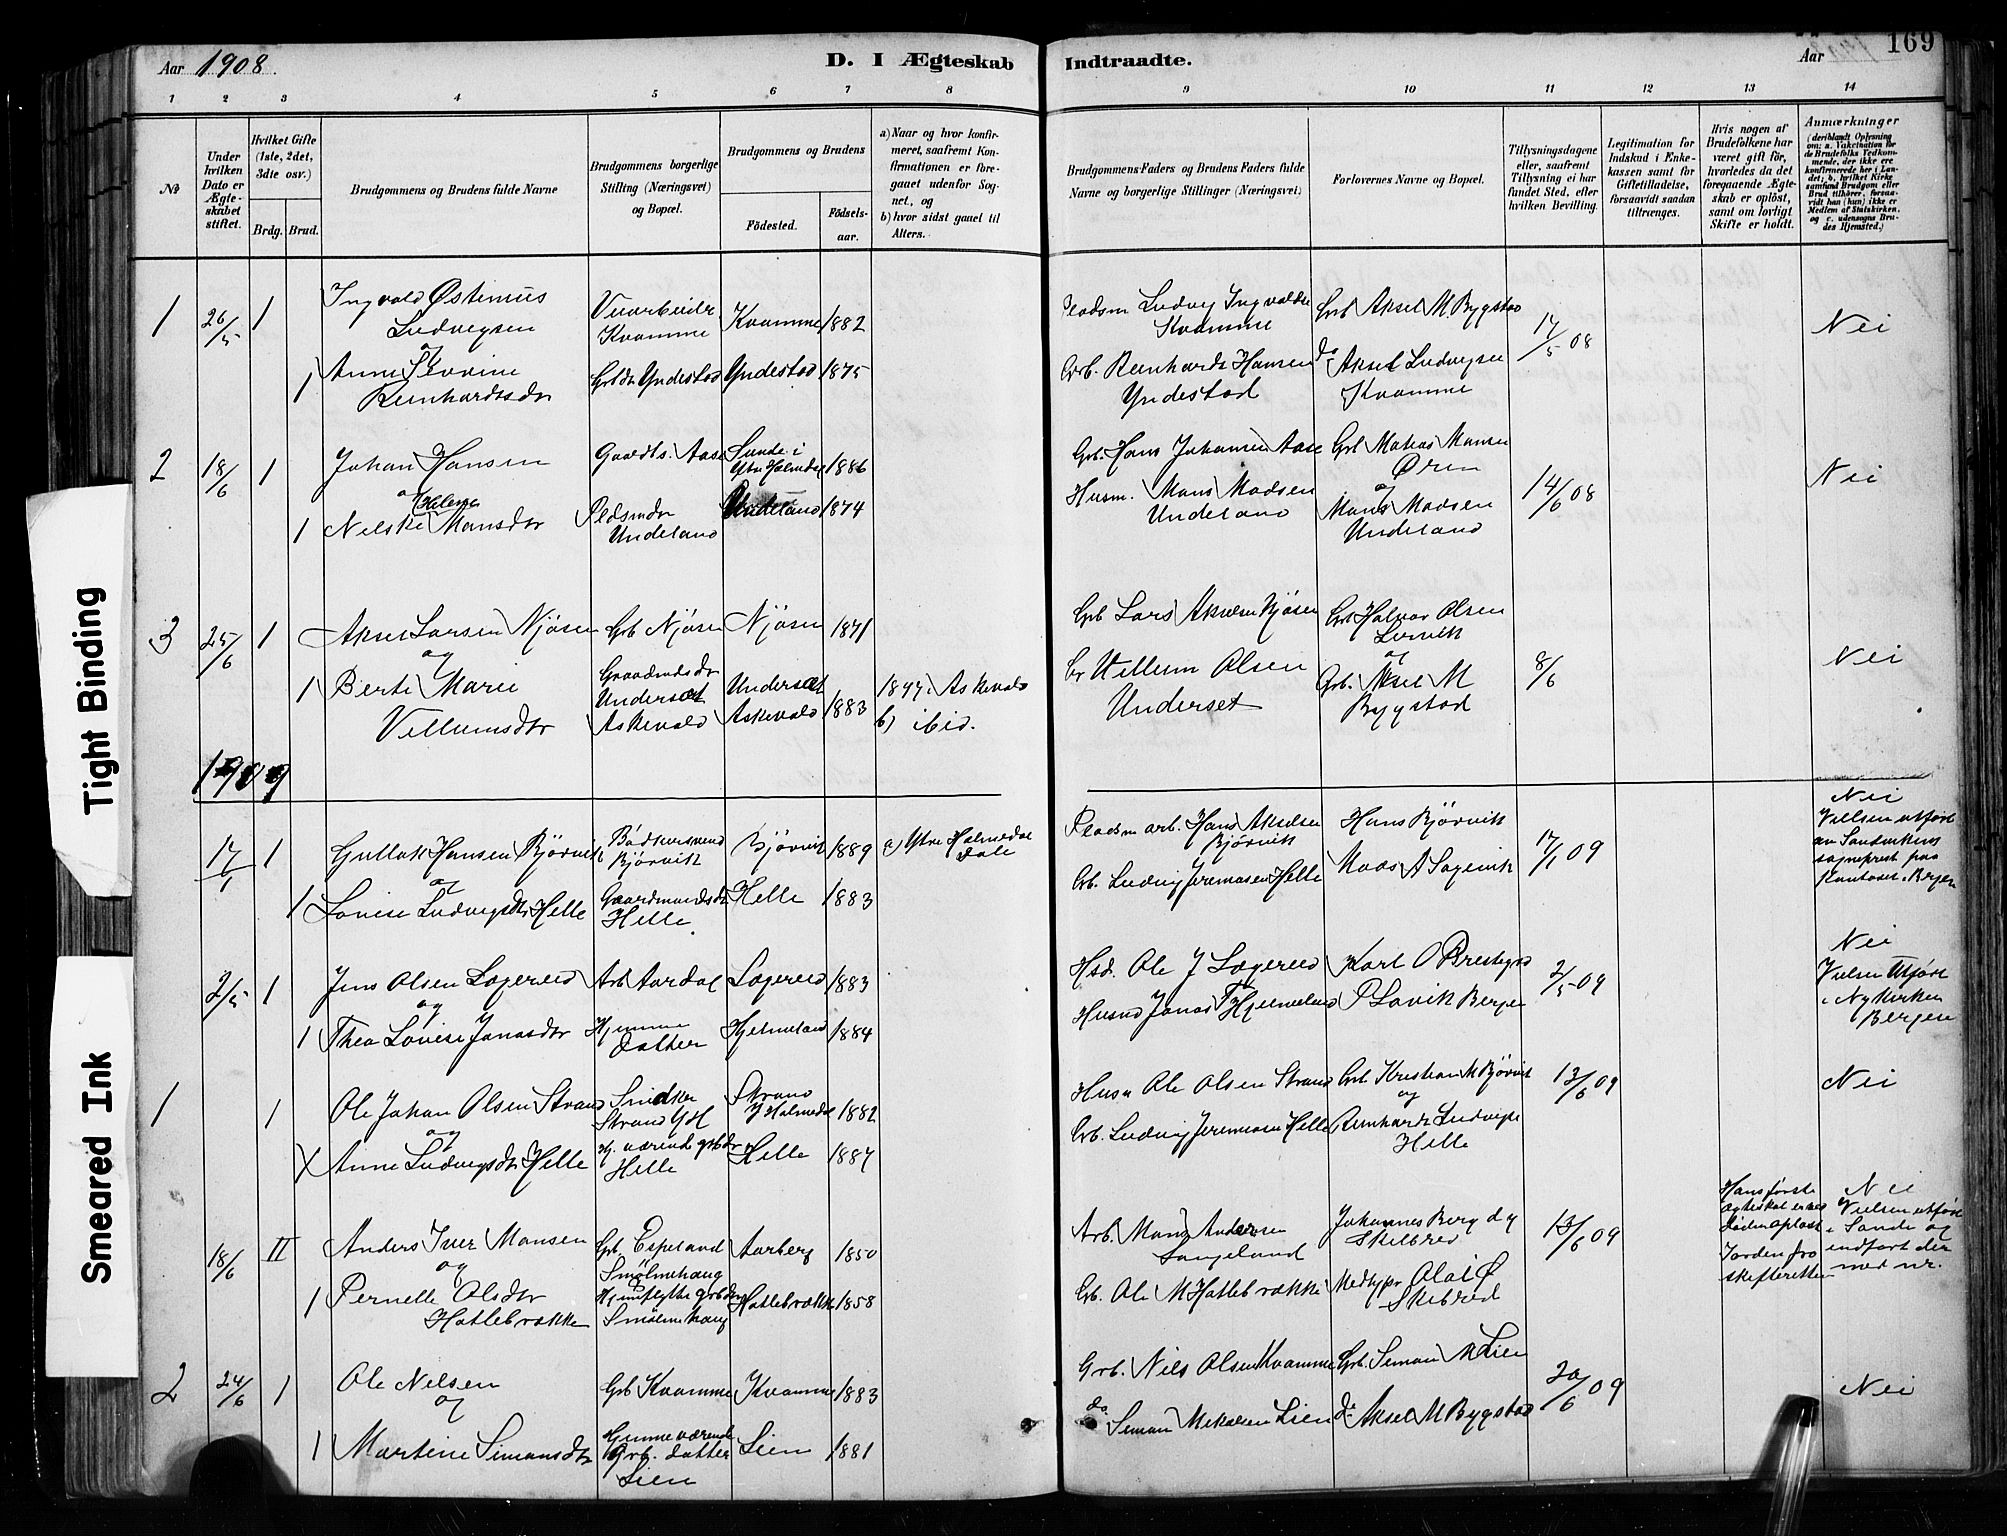 Aar 1908.
D. I Ægteskab Indtraadte.
Aar
169
1 2 3 4 5 6 7 8 9 10 11 12 13 14
№
Under hvilken Dato er Ægteskabet stiftet.
Hvilket Gifte (1ste, 2det, 3dte osv.)
Brdg. Brud.
Brudgommens og Brudens fulde Navne
Brudgommens borgerlige Stilling (Næringsvei) og Bopæl.
Brudgommens og Brudens
Födested. Födsels-aar.
a) Naar og hvor konfirmeret, saafremt Konfirmationen er foregaaet udenfor Sognet, og
b) hvor sidst gaaet til Alters.
Brudgommens Faders og Brudens Faders fulde Navne og borgerlige Stillinger (Næringsvei)
Forlovernes Navne og Bopæl.
Tillysningsdagene eller, saafremt Tillysning ei har fundet Sted, efter hvilken Bevilling.
Legitimation for Indskud i Enkekassen samt for Giftetilladelse, forsaavidt saadan tiltrænges.
Hvis nogen af Brudefolkene har været gift för, hvorledes da det foregaaende Ægteskab er oplöst, samt om lovligt Skifte er holdt.
Anmærkninger
(deriblandt Oplysning om: a. Vakcination for de Brudefolks Vedkommende, der ikke ere konfirmerede her i Landet; b. hvilket Kirkesamfund Brudgom eller Brud tilhörer, forsaavidt han (hun) ikke er Medlem af Statskirken, og c. udensogns Brudes Hjemsted.)
1 26/5 1 Ingvald Østenius Ludvigsen Kvamme Kvamme 1882 Pladsm Ludvig Ingvaldse Kvamme Grb Aksel M Bygstad 17/5 08 Nei
og
1 Anne Severine Bernhardsdtr Grbdtr Yndestad Yndestad 1875 Grb. Bernhard Hansen Yndestad do Aksel Ludvigsen Kvamme
2 18/6 1 Johan Hansen Gaardbs. Aase Sande i Ytre Holmedal 1886 Grb. Hans Johansen Aase Grb Matias Monsen Øren 14/6 08 Nei
og
1 Nelske Helene Monsdtr Pldsmdtr Undeland Undeland 1874 Husm. Mons Madsen Undeland og Mons Madsen Undeland
3 25/6 1 Aksel Larsen Njøsen Grb Njøsen Njøsen 1871 Grb Lars Akselsen Njøsen Grb Halvor Olsen Lervik 8/6 Nei
og
1 Berte Marie Villumsdtr Gaardmdsdtr Underset Askevold Underset Askevold 1883 1897 i Askevold b) ibid. Gr Villum Olsen Underset og Grb. Aksel M Bygstad
1909
17/1 1 Gullak Hansen Bjørvik Bødkersvend Bjørvik Bjørvik 1889 a) Ytre Holmedal Dale Pladsm arb. Hans Akselsen Bjørvik Hans Bjørvik 17/1 09 Nei
Vielsen utført av Sandvikens sogneprest paa kontoret i Bergen
og
1 Lovise Ludvigsdtr Helle Gaardmandsdtr Helle Helle 1883 Grb. Ludvig Jeremiasen Helle Mads A Sagevik
2/5 1 Jens Olsen Lægereid Arb Aardal Lægereid 1883 Hsd. Ole J Lægereid Karl O Brestegnd 2/5 09 Nei
Vielsen utført i Nykirken Bergen
og
1 Thea Lovise Jonasdtr Hjemme datter Hjelmeland 1884 Husmd Jonas T Hjelmeland P Lavik Bergen
1 1 Ole Johan Olsen Strand Snidker Strand YH Strand Y Holmedal 1882 Husm Ole Olsen Strand Grb. Kristian M Bjørvik 13/6 09 Nei
og og
1 Anne Ludvigsdtr Helle Hj. værende grbdtr Helle Helle 1887 Grb. Ludvig Jeremiasen Helle Bernhard Ludvigse Helle
18/6 II Anders Iver Monsen Grb. Espeland Smølmehaug Aarberg 1850 Arb. Mons Andersen Langeland Johannes Berg d y Skilbrei 13/6 09 Hans første egteskab er ved døden opløst Nei
Vielsen utført i Sande og indført der med nr.
og
1 Pernelle Olsdtr Hatlebrække Smølmehaug Hatlebrække 1858 Grb. Ole M Hatlebrække Olai Ø Skilbred skifteretten
2 24/6 1 Ole Nilsen Grb Kvamme Kvamme 1883 Grb. Nils Olsen Kvamme Grb. Simon M Lien 20/6 09 Nei
og
1 Martine Simonsdtr Hjemmeværende Grb. datter Lien Lien 1881 do Simon Mikalsen Lien do Aksel M Bygstad
Tight Binding
Smeared Ink